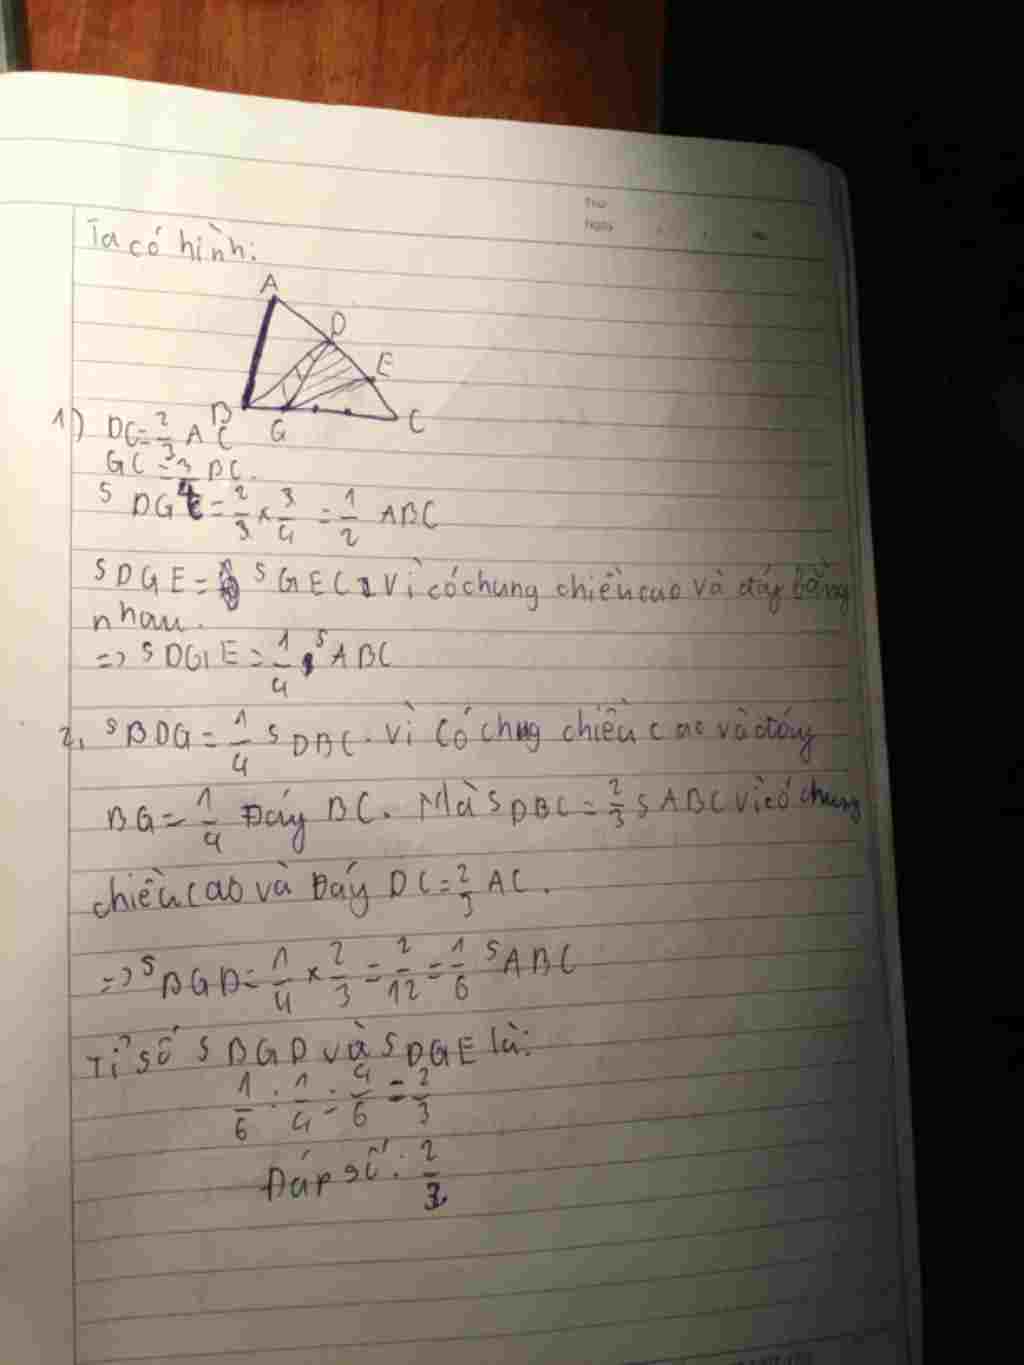 Thứ
Ngày
Ta có hình:
A
D
E
B
G
C
1) DC = 2/3 AC
GC = 3/4 BC.
S DGC = 2/3 x 3/4 = 1/2 ABC
S DGE = S GEC Vì có chung chiều cao và đáy bằng
nhau.
=> S DGE = 1/4 S ABC
2, S BDG = 1/4 S DBC. Vì có chung chiều cao và đáy
BG = 1/4 Đáy BC. Mà S DBC = 2/3 S ABC vì có chung
chiều cao và Đáy DC = 2/3 AC.
=> S BGD = 1/4 x 2/3 = 2/12 = 1/6 S ABC
Tỉ số S BGD và S DGE là:
1/6 : 1/4 = 4/6 = 2/3
Đáp số: 2/3